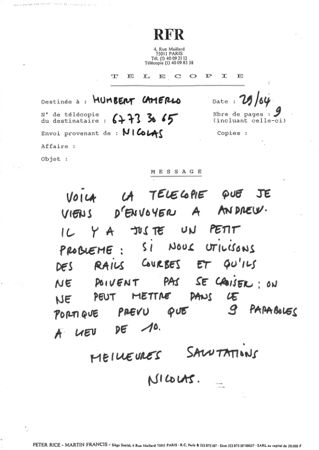 RFR
4, Rue Maillard
75011 PARIS
Tél. (1) 40 09 21 12
Télécopie (1) 40 09 83 38
TELECOPIE
Destinée à : HUMBERT CAMERLO
Date : 29/04
N° de télécopie
du destinataire : 6773 30 65
Nbre de pages : 9
(incluant celle-ci)
Envoi provenant de : NICOLAS
Copies :
Affaire :
Objet :
MESSAGE
VOILA LA TELECOPIE QUE JE
VIENS D'ENVOYER A ANDREW.
IL Y A JUSTE UN PETIT
PROBLEME : SI NOUS UTILISONS
DES RAILS COURBES ET QU'ILS
NE DOIVENT PAS SE CROISER : ON
NE PEUT METTRE DANS LE
PORTIQUE PREVU QUE 9 PARABOLES
A LIEU DE 10.
MEILLEURES SALUTATIONS
NICOLAS.
PETER RICE - MARTIN FRANCIS - Siège Social, 4 Rue Maillard 75011 PARIS - R.C. Paris B